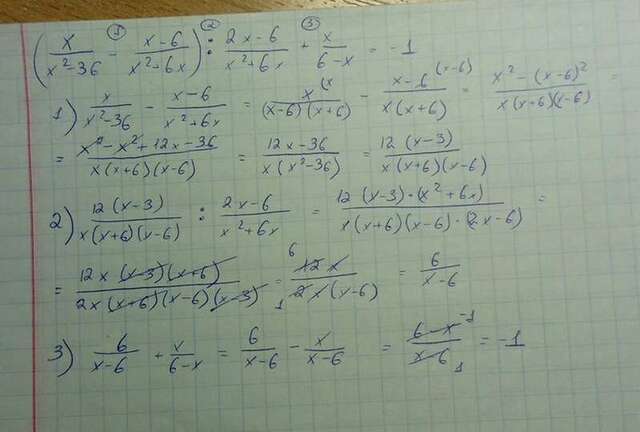 ① ② ③
(x/(x²-36) - (x-6)/(x²+6x)) : (2x-6)/(x²+6x) + x/(6-x) = -1
1) x/(x²-36) - (x-6)/(x²+6x) = x^(x/((x-6)(x+6)) - x-6^(x-6)/(x(x+6)) = (x²-(x-6)²)/(x(x+6)(x-6)) =
= (x²-x²+12x-36)/(x(x+6)(x-6)) = (12x-36)/(x(x²-36)) = 12(x-3)/(x(x+6)(x-6))
2) 12(x-3)/(x(x+6)(x-6)) : (2x-6)/(x²+6x) = 12(x-3)·(x²+6x)/(x(x+6)(x-6)·(2x-6)) =
= 12x(x-3)(x+6)/(2x(x+6)(x-6)(x-3)) = 6 12x/(1 2x(x-6)) = 6/(x-6)
3) 6/(x-6) + x/(6-x) = 6/(x-6) - x/(x-6) = (6-x)^-1/(x-6)1 = -1